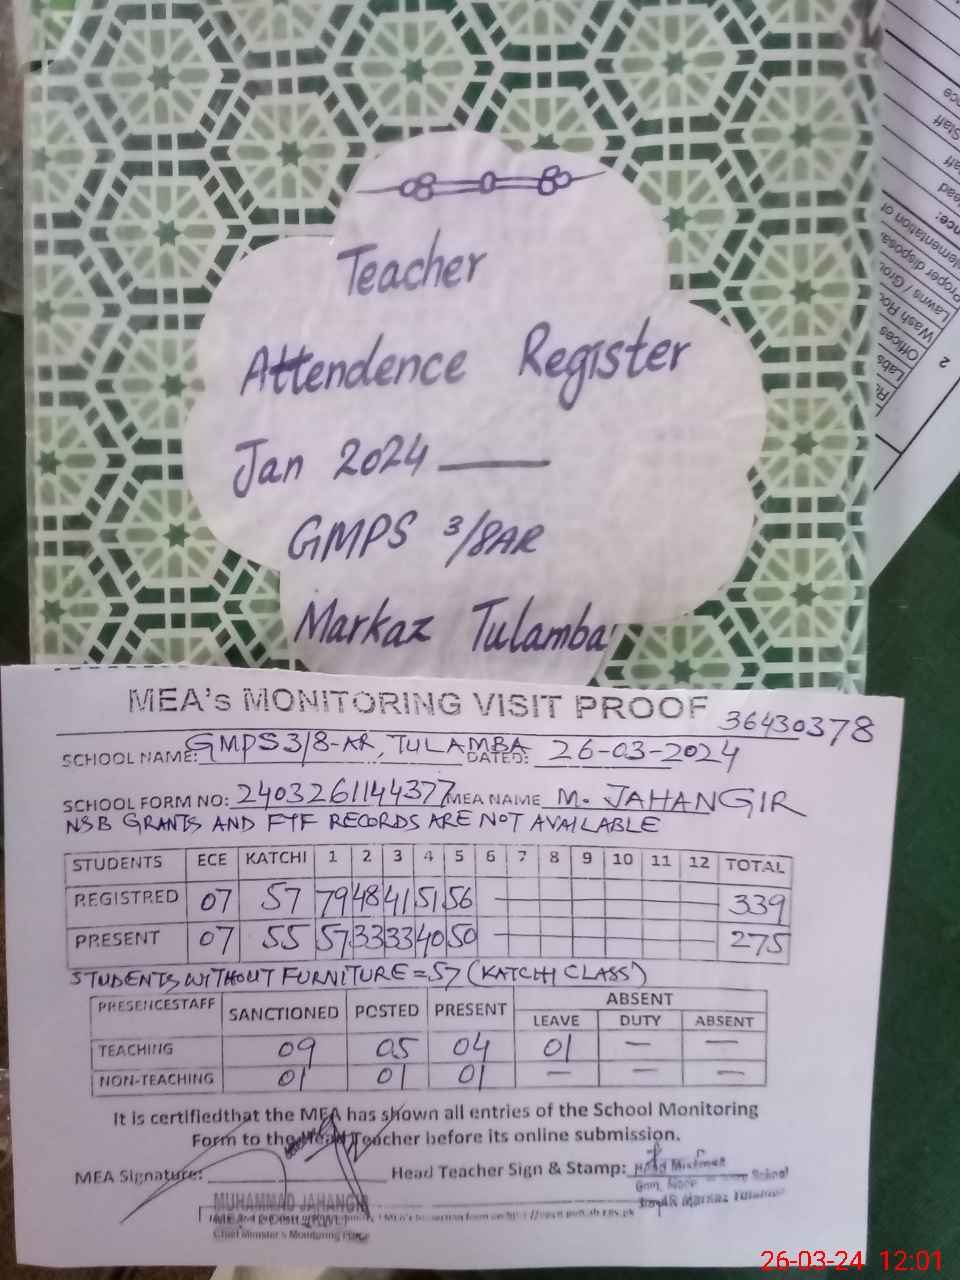 Teacher
Attendence Register
Jan 2024 ——
GMPS 3/8AR
Markaz Tulamba
MEA's MONITORING VISIT PROOF 36430378
SCHOOL NAME: GMPS 3/8-AR, TULAMBA DATED: 26-03-2024
SCHOOL FORM NO: 2403261144377 MEA NAME M. JAHANGIR
NSB GRANTS AND FTF RECORDS ARE NOT AVAILABLE
STUDENTS ECE KATCHI 1 2 3 4 5 6 7 8 9 10 11 12 TOTAL
REGISTRED 07 57 79 48 41 51 56 339
PRESENT 07 55 57 33 33 40 50 275
STUDENTS WITHOUT FURNITURE = 57 (KATCHI CLASS)
PRESENCESTAFF SANCTIONED POSTED PRESENT ABSENT
LEAVE DUTY ABSENT
TEACHING 09 05 04 01 — —
NON-TEACHING 01 01 01 — — —
It is certifiedthat the MEA has shown all entries of the School Monitoring
Form to the Head Teacher before its online submission.
MEA Signature: Head Teacher Sign & Stamp: Head Mistress
School
Markaz Tulamba
MUHAMMAD JAHANGIR
MEA
Chief Minister's Monitoring Force
2
Labs
Offices
Wash
Lawns / 
Proper disposal
Staff
26-03-24 12:01